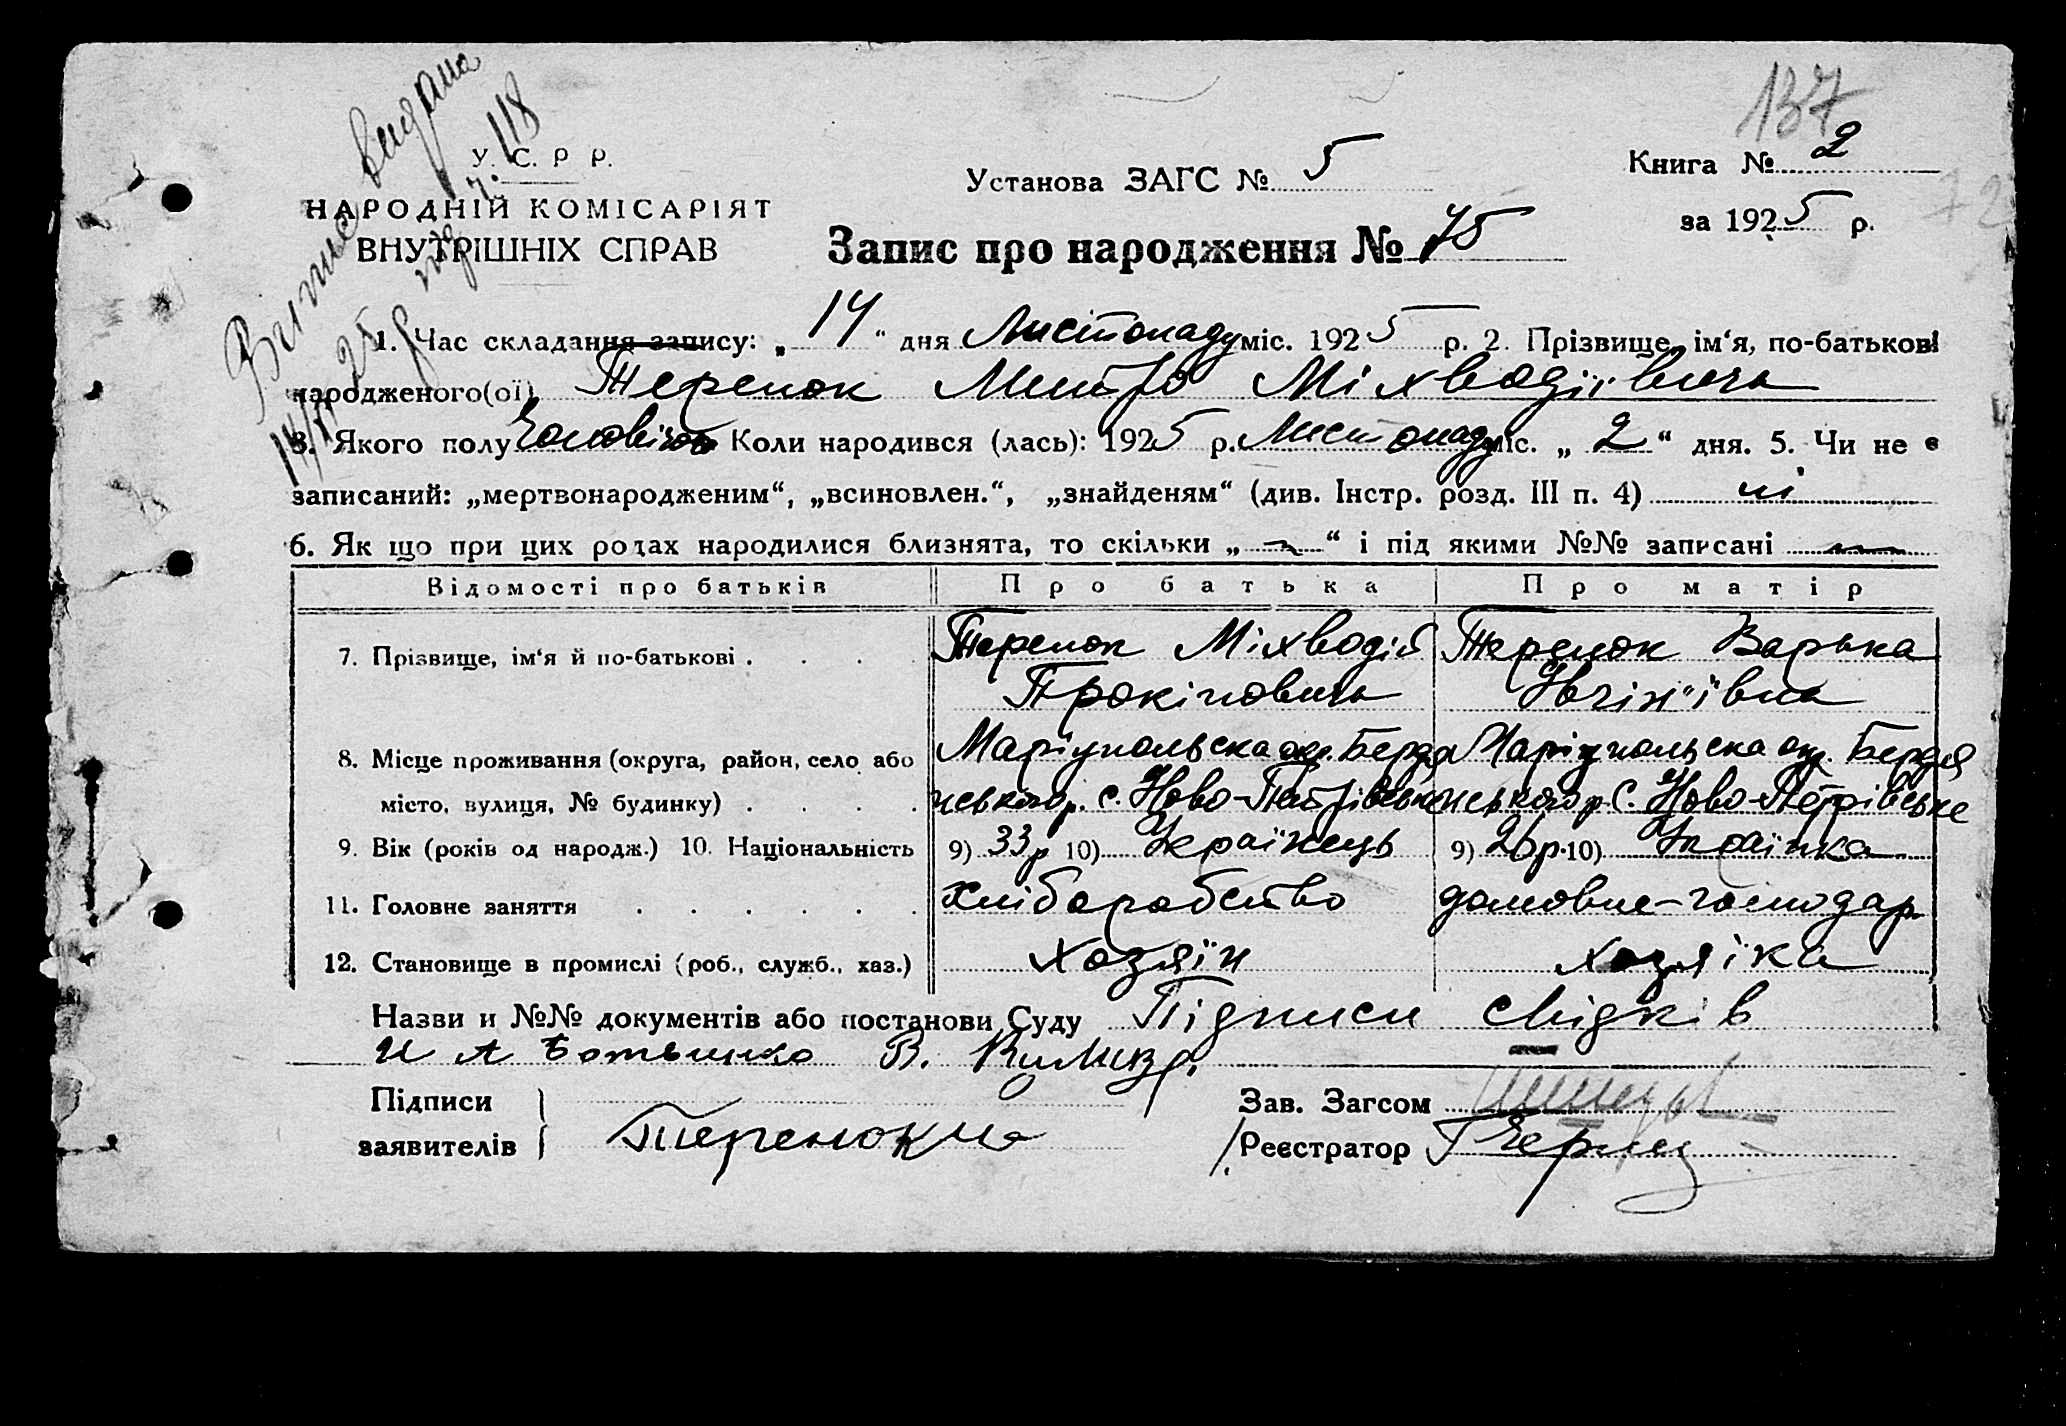 137
Випис видана
14/XI 25 р. ч. 118
У. С. Р Р.
НАРОДНІЙ КОМІСАРІЯТ
ВНУТРІШНІХ СПРАВ
Установа ЗАГС № 5
Книга № 2
за 1925 р.
72
Запис про народження № 75
1. Час складання запису: „ 14 “ дня Листопаду міс. 1925 р. 2. Прізвище, ім‘я, по-батькові
народженого(ої) Теренок Митро Міхводіівичь
3. Якого полу Чоловічого Коли народився (лась): 1925 р. Листопаду міс. „ 2 “ дня. 5. Чи не є
записаний: „мертвонародженим“, „всиновлен.“, „знайденям“ (див. Інстр. розд. III п. 4) ні
6. Як що при цих родах народилися близнята, то скільки „ — “ і під якими №№ записані —
Відомості про батьків Про батька Про матір
7. Прізвище, ім‘я й по-батькові . Теренок Міхводій Теренок Варька
Прокіповичь
8. Місце проживання (округа, район, село або Маріупольска окр. Бердя Маріупольска окр. Бердя
місто, вулиця, № будинку) . нського р. с. Ново-Петрівське нського р. с. Ново-Петрівське
9. Вік (років од народж.) 10. Національність 9) 33 р 10) Українець 9) 26 р. 10) Українка
11. Головне заняття . хліборобство домовне-господар.
12. Становище в промислі (роб., служб., хаз.) Хозяїн хозяїка
Назви и №№ документів або постанови Суду Підписи свідків
И А В.
Підписи
заявителів Теренок
Зав. Загсом
Реєстратор